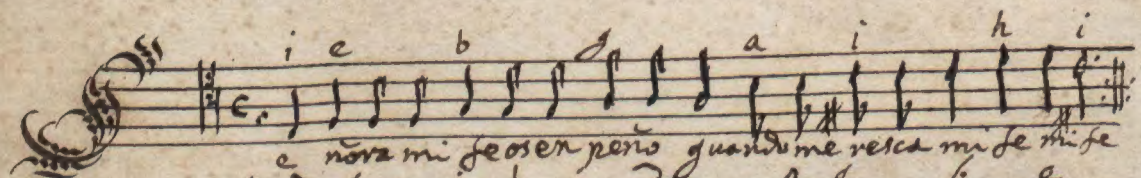 i e b g a i h i
S e nōra mi fe os en peño quando me resca mi fe mi fe